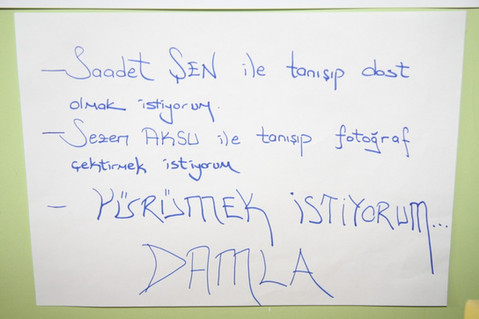 - Saadet ŞEN ile tanışıp dost
olmak istiyorum.
- Sezen AKSU ile tanışıp fotoğraf
çektirmek istiyorum
- YÜRÜMEK İSTİYORUM...
DAMLA